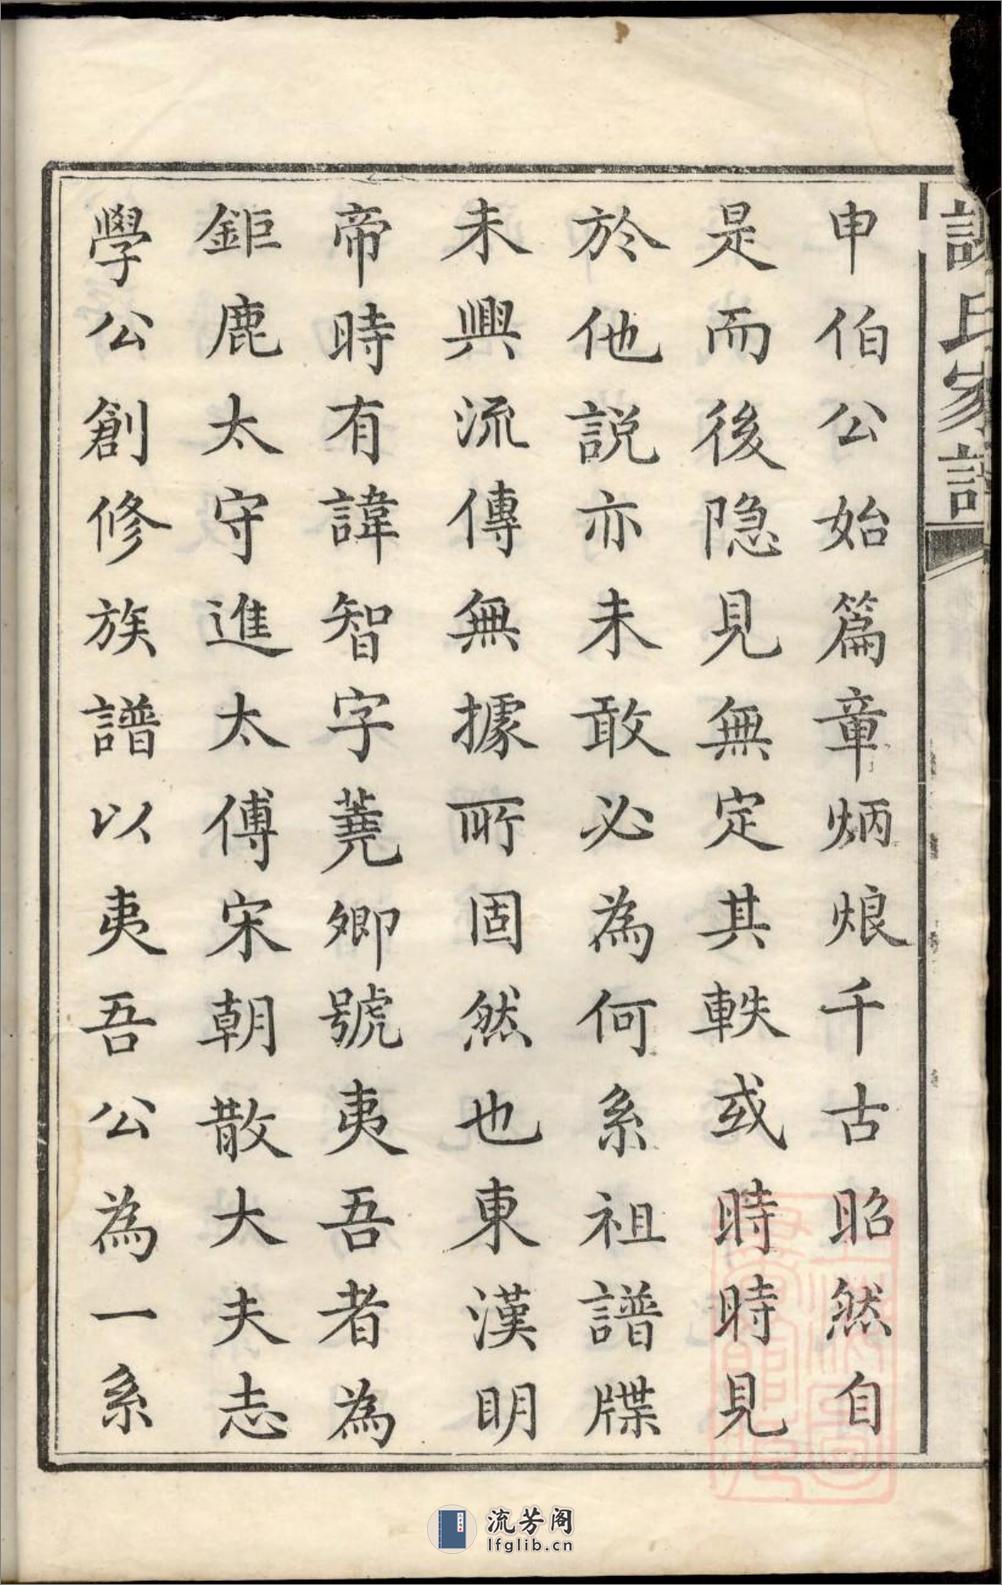 謝氏家譜
申伯公始篇章炳烺千古昭然自
是而後隐見無定其軼或時時見
於他説亦未敢必為何系祖譜牒
未興流傳無據所固然也東漢明
帝時有諱智字蕘卿號夷吾者為
鉅鹿太守進太傅宋朝散大夫志
學公創修族譜以夷吾公為一系
流芳阁
lfglib.cn